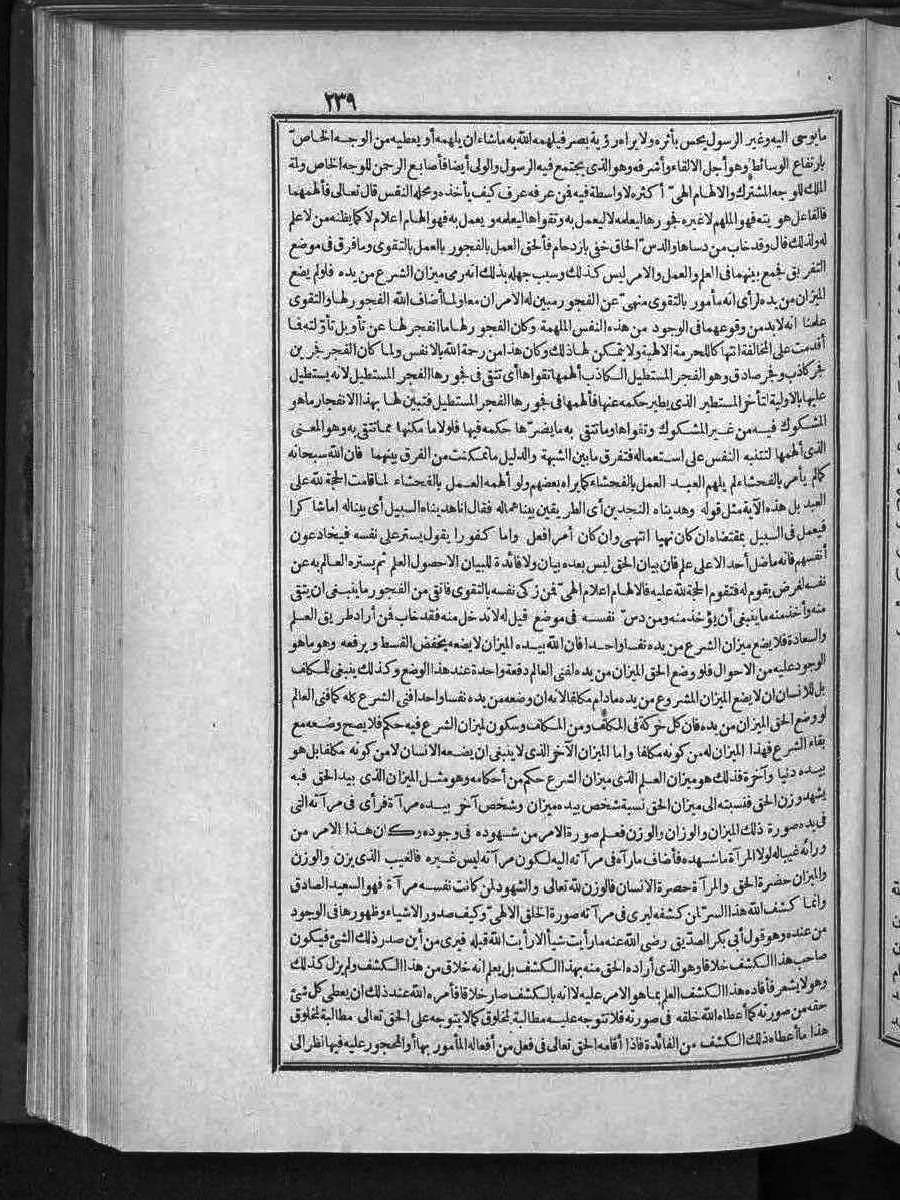 ٢٣٩
ما يوحى اليه وغير الرسول يحس بأثره ولا يراه رؤية بصر فيلهمه الله به ما شاء ان يلهمه أو يعطيه من الوجه الخاص
بارتفاع الوسائط وهو أجل الالقاء وأشرفه وهو الذى يجتمع فيه الرسول والولى أيضا فأصابع الرحمن للوجه الخاص ولمة
الملك للوجه المشترك والالهام الهىّ أكثره لا واسطة فيه فمن عرفه عرف كيف يأخذه ومحله النفس قال تعالى فألهمها
فالفاعل هو يته فهو الملهم لا غيره فجورها ليعلمه لا ليعمل به وتقواها ليعلمه و يعمل به فهو الهام اعلام لا كما يظنه من لا علم
له ولذلك قال وقد خاب من دساها والدس الحاق خفى بازدحام فألحق العمل بالفجور بالعمل بالتقوى وما فرق فى موضع
التفريق فجمع بينهما فى العلم والعمل والامر ليس كذلك وسبب جهله بذلك انه رمى ميزان الشرع من يده فلو لم يضع
الميزان من يده لرأى انه مأمور بالتقوى منهىّ عن الفجور مبين له الامران معا ولما أضاف الله الفجور لها والتقوى
علمنا انه لابد من وقوعهما فى الوجود من هذه النفس الملهمة وكان الفجور لها ما انفجر لها عن تأويل تأولته فما
أقدمت على المخالفة انتهاكا للحرمة الالهية ولا يتمكن لها ذلك وكان هذا من رحمة الله بالانفس ولما كان الفجر فجرين
فجر كاذب وفجر صادق وهو الفجر المستطيل الكاذب ألهمها تقواها أى تتقى فى فجورها الفجر المستطيل لانه يستطيل
عليها بالاولية لتأخر المستطير الذى يطير حكمه عنها فألهمها فى فجورها الفجر المستطيل فتبين لها بهذا الانفجار ما هو
المشكوك فيه من غير المشكوك وتقواها وما تتقى به ما يضرّها حكمه فيها فلولا ما مكنها مما تتقى به وهو المعنى
الذى ألهمها لتتنبه النفس على استعماله فتفرق ما بين الشبهة والدليل ما تمكنت من الفرق بينهما فان الله سبحانه
كما لم يأمر بالفحشاء لم يلهم العبد العمل بالفحشاء كما يراه بعضهم ولو ألهمه العمل بالفحشاء لما قامت الحجة لله على
العبد بل هذه الآية مثل قوله وهديناه النجدين أى الطريقين بيناهما له فقال انا هديناه السبيل أى بينا له اما شاكرا
فيعمل فى السبيل بمقتضاه ان كان نهيا انتهى وان كان أمرا فعل واما كفورا يقول يستر على نفسه فيخادعون
أنفسهم فانه ما ضل أحد الا على علم فان بيان الحق ليس بعده بيان ولا فائدة للبيان الا حصول العلم ثم يستره العالم به عن
نفسه لغرض يقوم له فتقوم الحجة لله عليه فالالهام اعلام الهىّ فمن زكى نفسه بالتقوى فاتقى من الفجور ما ينبغى ان يتقى
منه وأخذ منه ما ينبغى أن يؤخذ منه ومن دس نفسه فى موضع قيل له لا تدخل منه فقد خاب فمن أراد طريق العلم
والسعادة فلا يضع ميزان الشرع من يده نفسا واحدا فان الله بيده الميزان لا يضعه يخفض القسط ويرفعه وهو ما هو
الوجود عليه من الاحوال فلو وضع الحق الميزان من يده لفنى العالم دفعة واحدة عند هذا الوضع وكذلك ينبغى للمكلف
بل للانسان ان لا يضع الميزان المشروع من يده مادام مكلفا لانه ان وضعه من يده نفسا واحدا فنى الشرع كله كما فنى العالم
لو وضع الحق الميزان من يده فان كل حركة فى المكلف ومن المكلف وسكون لميزان الشرع فيه حكم فلا يصح وضعه مع
بقاء الشرع فهذا الميزان له من كونه مكلفا واما الميزان الآخر الذى لا ينبغى ان يضعه الانسان لا من كونه مكلفا بل هو
بيده دنيا وآخرة فذلك هو ميزان العلم الذى ميزان الشرع حكم من أحكامه وهو مثل الميزان الذى بيد الحق فبه
يشهد وزن الحق فنسبته الى ميزان الحق نسبة شخص بيده ميزان وشخص آخر بيده مرآة فرأى فى مرآته التى
فى يده صورة ذلك الميزان والوزان والوزن فعلم صورة الامر من شهوده فى وجوده وكان هذا الامر من
ورائه غيبا له لولا المرآة ما شهده فأضاف ما رآه فى مرآته اليه لكون مرآته ليس غيره فالغيب الذى يزن والوزن
والميزان حضرة الحق والمرآة حضرة الانسان فالوزن لله تعالى والشهود لمن كانت نفسه مرآة فهو السعيد الصادق
وانما كشف الله هذا السرّ لمن كشفه ليرى فى مرآته صورة الخلق الالهىّ وكيف صدور الاشياء وظهورها فى الوجود
من عنده وهو قول أبى بكر الصدّيق رضى الله عنه ما رأيت شيأ الا رأيت الله قبله فيرى من أين صدر ذلك الشئ فيكون
صاحب هذا الكشف خلاقا وهو الذى أراده الحق منه بهذا الكشف بل يعلم انه خلاق من هذا الكشف ولم يزل كذلك
وهو لا يشعر فأفاده هذا الكشف العلم بما هو الامر عليه لا انه بالكشف صار خلاقا فأمره الله عند ذلك ان يعطى كل شئ
حقه من صورته كما أعطاه الله خلقه فى صورته فلا تتوجه عليه مطالبة لمخلوق كما لا يتوجه على الحق تعالى مطالبة لمخلوق
هذا ما أعطاه ذلك الكشف من الفائدة فاذا أقامه الحق تعالى فى فعل من أفعاله المأمور بها أو المحجور عليه فيها نظر الى